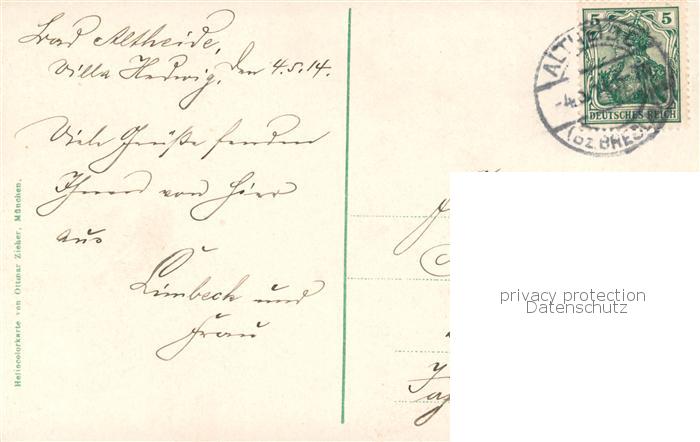 Bad Altheide,
Villa Hedwig, den 4.5.14.
Viele Grüße senden
Ihnen von hier
aus
Limbeck und
Frau
Heliocolorkarte von Ottmar Zieher, München.
5 5
DEUTSCHES REICH
ALTHEIDE
(BZ. BRESL
privacy protection
Datenschutz